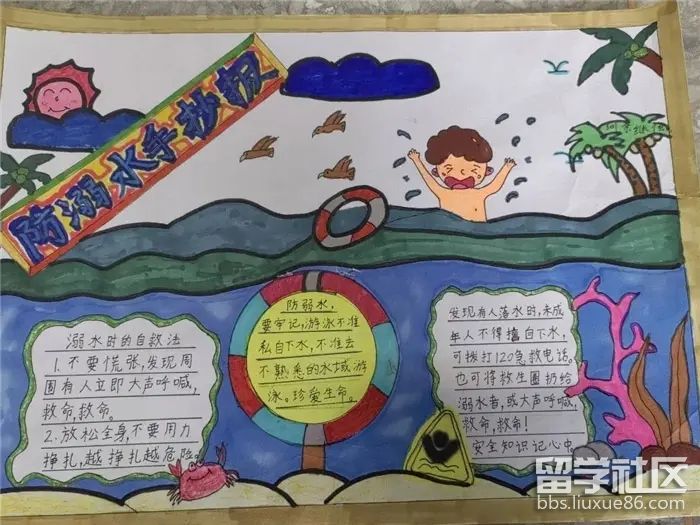 防溺水手抄报
溺水时的自救法
1.不要慌张,发现周
围有人立即大声呼喊,
救命,救命。
2.放松全身,不要用力
挣扎,越挣扎越危险。
防弱水,
要牢记,游泳不准
私自下水,不准去
不熟悉的水域游
泳。珍爱生命。
发现有人落水时,未成
年人不得擅自下水,
可拨打120急救电话。
也可将救生圈扔给
溺水者,或大声呼喊,
救命,救命!
安全知识记心中。
留学社区
bbs.liuxue86.com